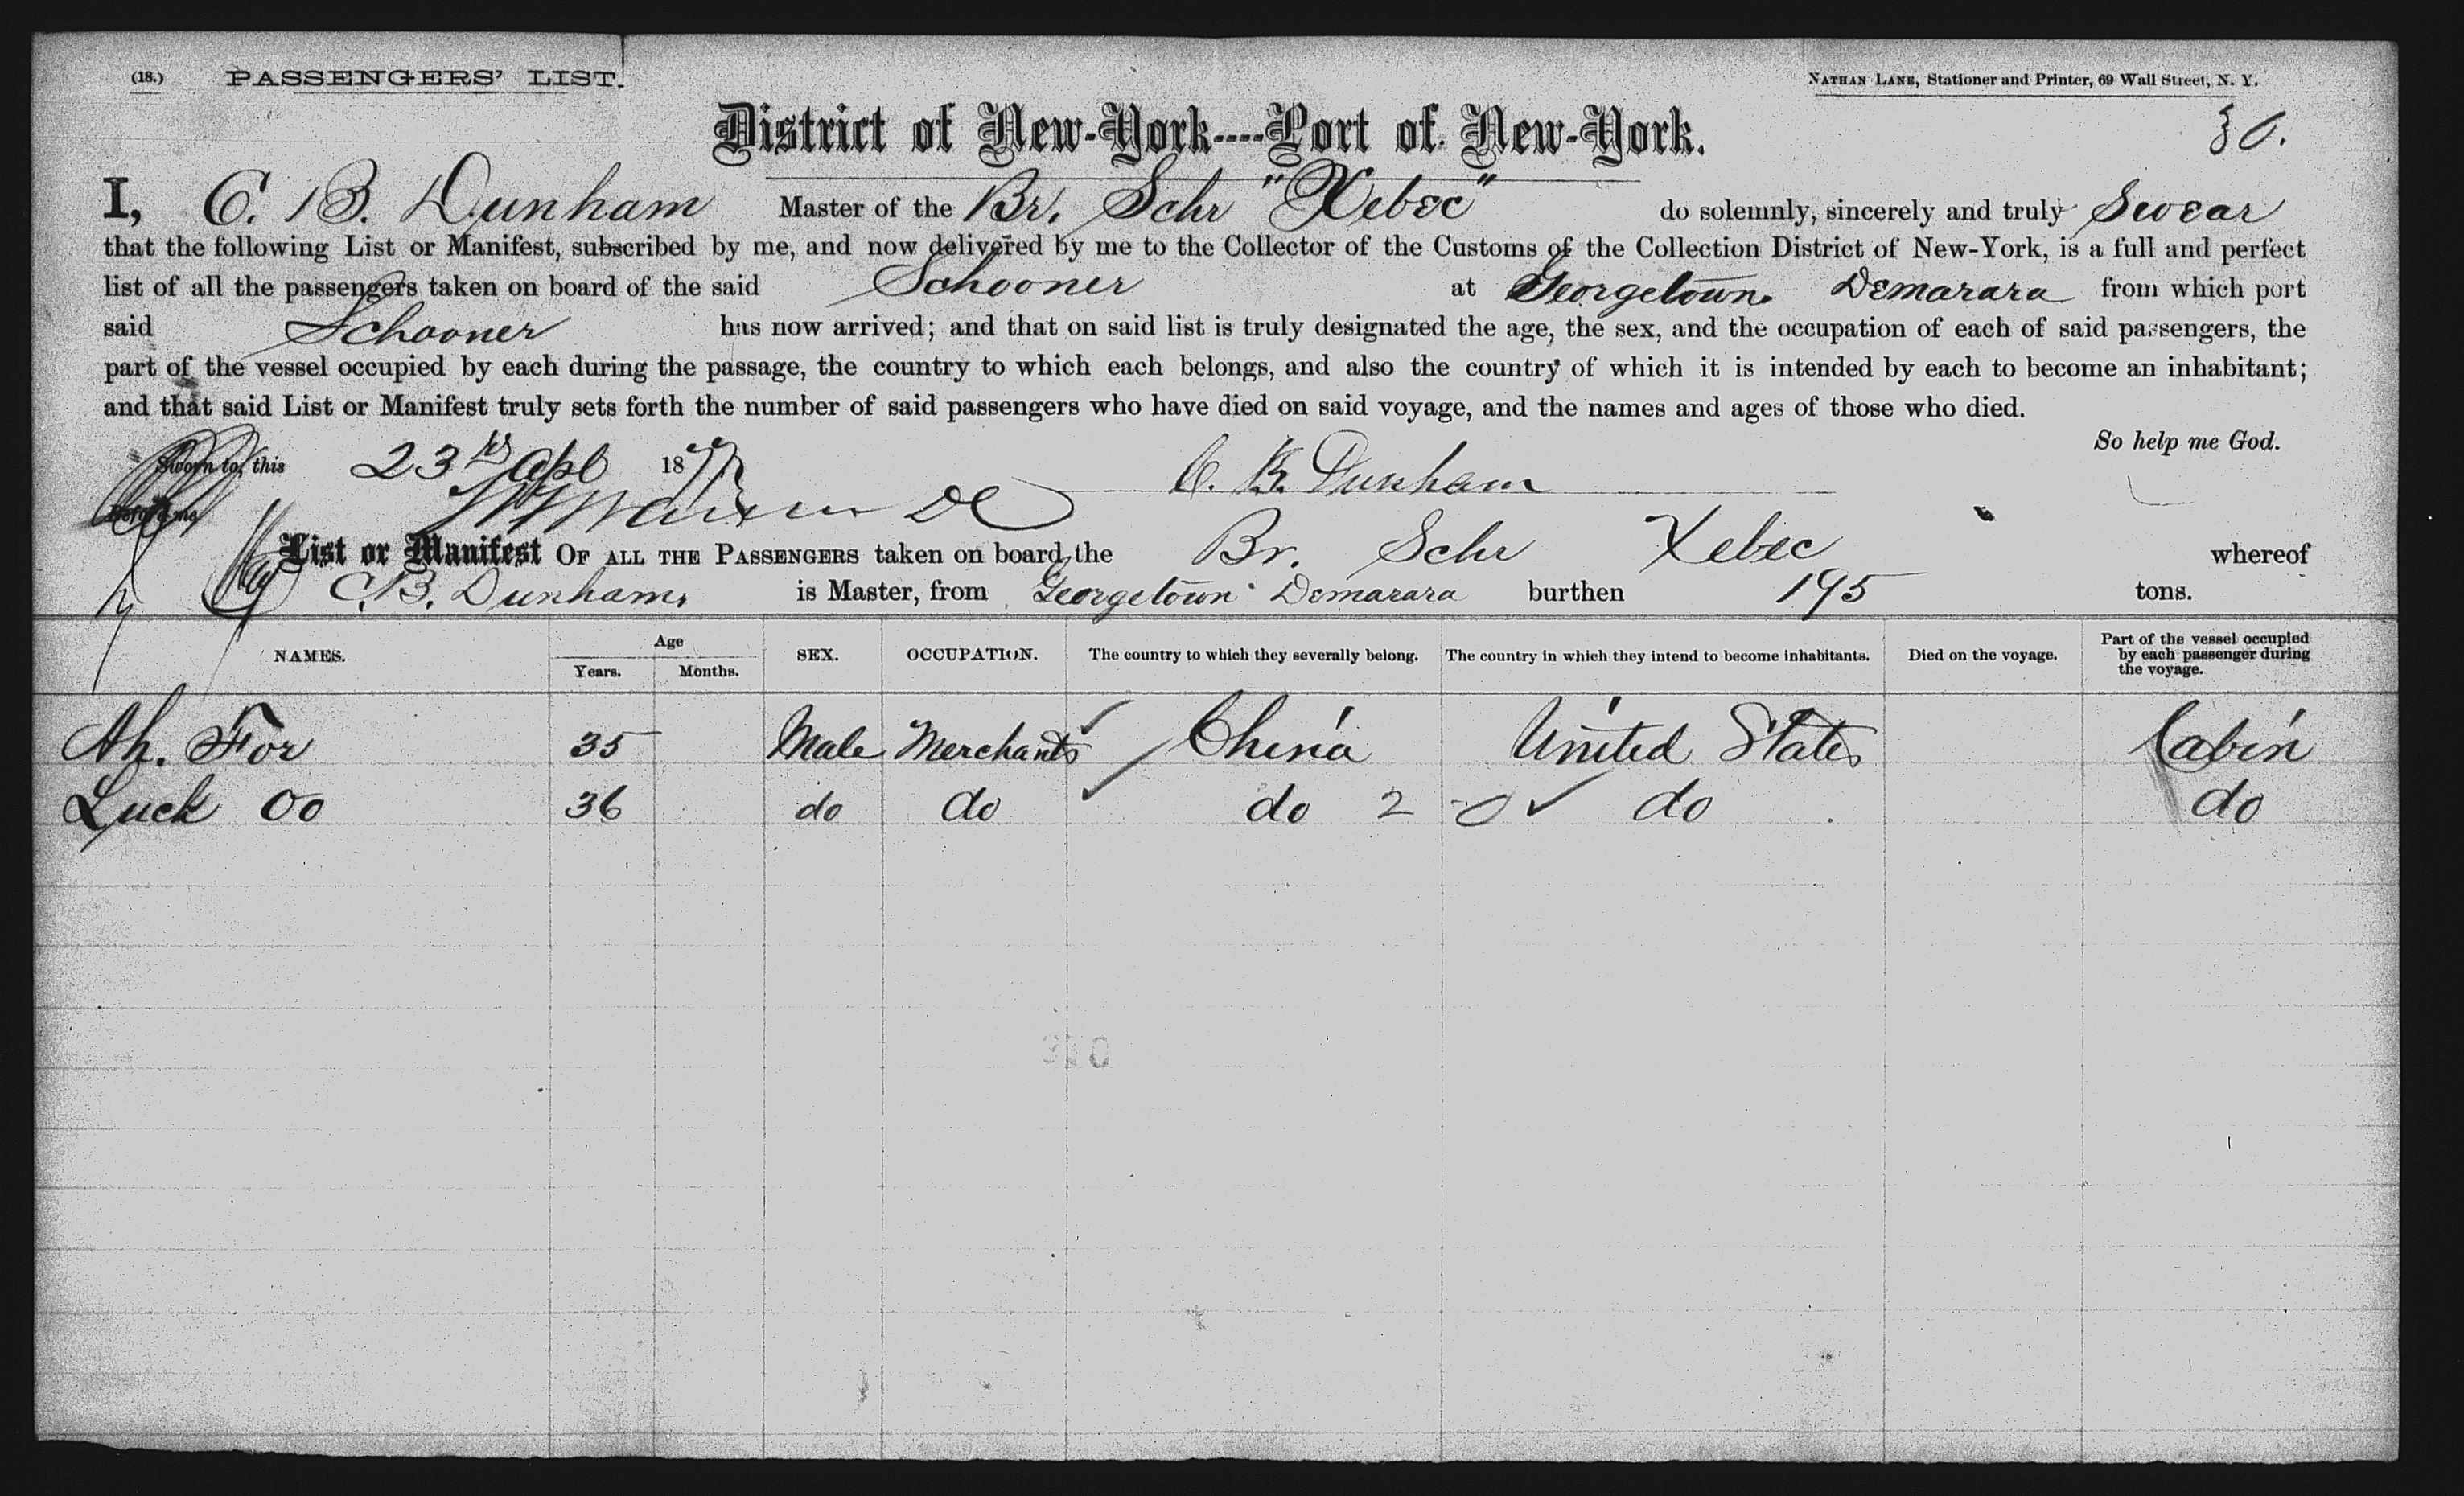 (18.) PASSENGERS' LIST.
NATHAN LANE, Stationer and Printer, 69 Wall Street, N. Y.
District of New-York----Port of New-York.
30.
I, C. B. Dunham Master of the Br. Schr "Xebec" do solemnly, sincerely and truly Swear
that the following List or Manifest, subscribed by me, and now delivered by me to the Collector of the Customs of the Collection District of New-York, is a full and perfect
list of all the passengers taken on board of the said Schooner at Georgetown Demarara from which port
said Schooner has now arrived; and that on said list is truly designated the age, the sex, and the occupation of each of said passengers, the
part of the vessel occupied by each during the passage, the country to which each belongs, and also the country of which it is intended by each to become an inhabitant;
and that said List or Manifest truly sets forth the number of said passengers who have died on said voyage, and the names and ages of those who died.
So help me God.
Sworn to, this 23rd Apl 1877 C. B. Dunham
Before me
List or Manifest OF ALL THE PASSENGERS taken on board the Br. Schr Xebec whereof
C. B. Dunham is Master, from Georgetown Demarara burthen 195 tons.
NAMES. Age Years. Months. SEX. OCCUPATION. The country to which they severally belong. The country in which they intend to become inhabitants. Died on the voyage. Part of the vessel occupied by each passenger during the voyage.
Ah. For 35 Male Merchants China United States Cabin
Luck Oo 36 do do do 2 do do